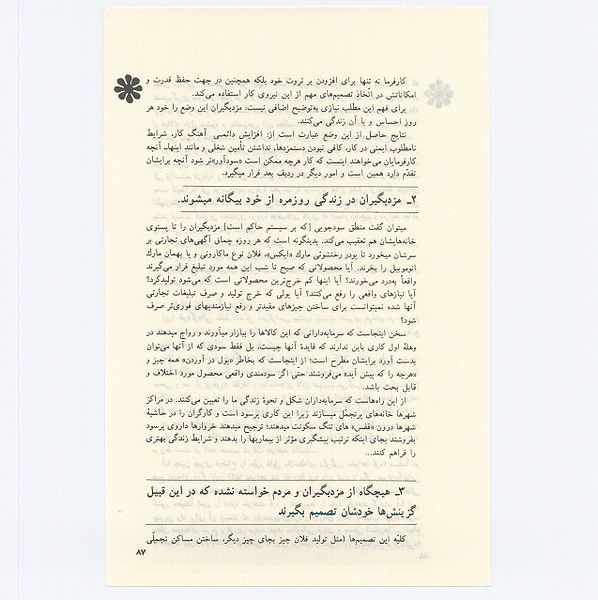 کارفرما نه تنها برای افزودن بر ثروت خود بلکه همچنین در جهت حفظ قدرت و
امکاناتش در اتّخاذ تصمیم‌های مهم از این نیروی کار استفاده می‌کند.
برای فهم این مطلب نیازی به‌توضیح اضافی نیست: مزدبگیران این وضع را خود هر
روز احساس و با آن زندگی می‌کنند.
نتایج حاصل از این وضع عبارت است از: افزایش دائمی آهنگ کار، شرایط
نامطلوب ایمنی در کار، کافی نبودن دستمزدها، نداشتن تأمین شغلی و مانند اینها- آنچه
کارفرمایان می‌خواهند اینست که کار هرچه ممکن است «سودآور»تر شود آنچه برایشان
تقدّم دارد همین است و امور دیگر در ردیف بعد قرار میگیرد.
۲ـ مزدبگیران در زندگی روزمره از خود بیگانه میشوند.
میتوان گفت منطق سودجویی [که بر سیستم حاکم است] مزدبگیران را تا پستوی
خانه‌هایشان هم تعقیب می‌کند. بدینگونه است که هر روزه چماق آگهی‌های تجارتی بر
سرشان میخورد تا پودر رختشوئی مارك «ایکس»، فلان نوع ماکارونی و یا بهمان مارك
اتوموبیل را بخرند. آیا محصولاتی که صبح تا شب این همه مورد تبلیغ قرار می‌گیرند
واقعاً بدرد می‌خورند؟ آیا اینها کم خرج‌ترین محصولاتی است که می‌شود تولیدکرد؟
آیا نیازهای واقعی را رفع می‌کنند؟ آیا پولی که خرج تولید و صرف تبلیغات تجارتی
آنها شده نمیتوانست برای ساختن چیزهای مفیدتر و رفع نیازمندیهای فوری‌تر صرف
شود؟
سخن اینجاست که سرمایه‌دارانی که این کالاها را ببازار میآورند و رواج میدهند در
وهلهٔ اول کاری باین ندارند که فایدهٔ آنها چیست، بل فقط سودی که از آنها می‌توان
بدست آورد برایشان مطرح است؛ از اینجاست که بخاطر «پول در آوردن» همه چیز و
«هرچه را که پیش آید» می‌فروشند حتی اگر سودمندی واقعی محصول مورد اختلاف و
قابل بحث باشد.
از این راه‌هاست که سرمایه‌داران شکل و نحوهٔ زندگی ما را تعیین می‌کنند. در مراکز
شهرها خانه‌های پرتجمّل میسازند زیرا این کاری پرسود است و کارگران را در حاشیهٔ
شهرها درون «قفس» های تنگ سکونت میدهند؛ ترجیح میدهند خروارها داروی پرسود
بفروشند بجای اینکه ترتیب پیشگیری مؤثر از بیماریها را بدهند و شرایط زندگی بهتری
را فراهم کنند...
۳ـ هیچگاه از مزدبگیران و مردم خواسته نشده که در این قبیل
گزینش‌ها خودشان تصمیم بگیرند
کلیّه این تصمیم‌ها (مثل تولید فلان چیز بجای چیز دیگر، ساختن مساکن تجمّلی
۸۷